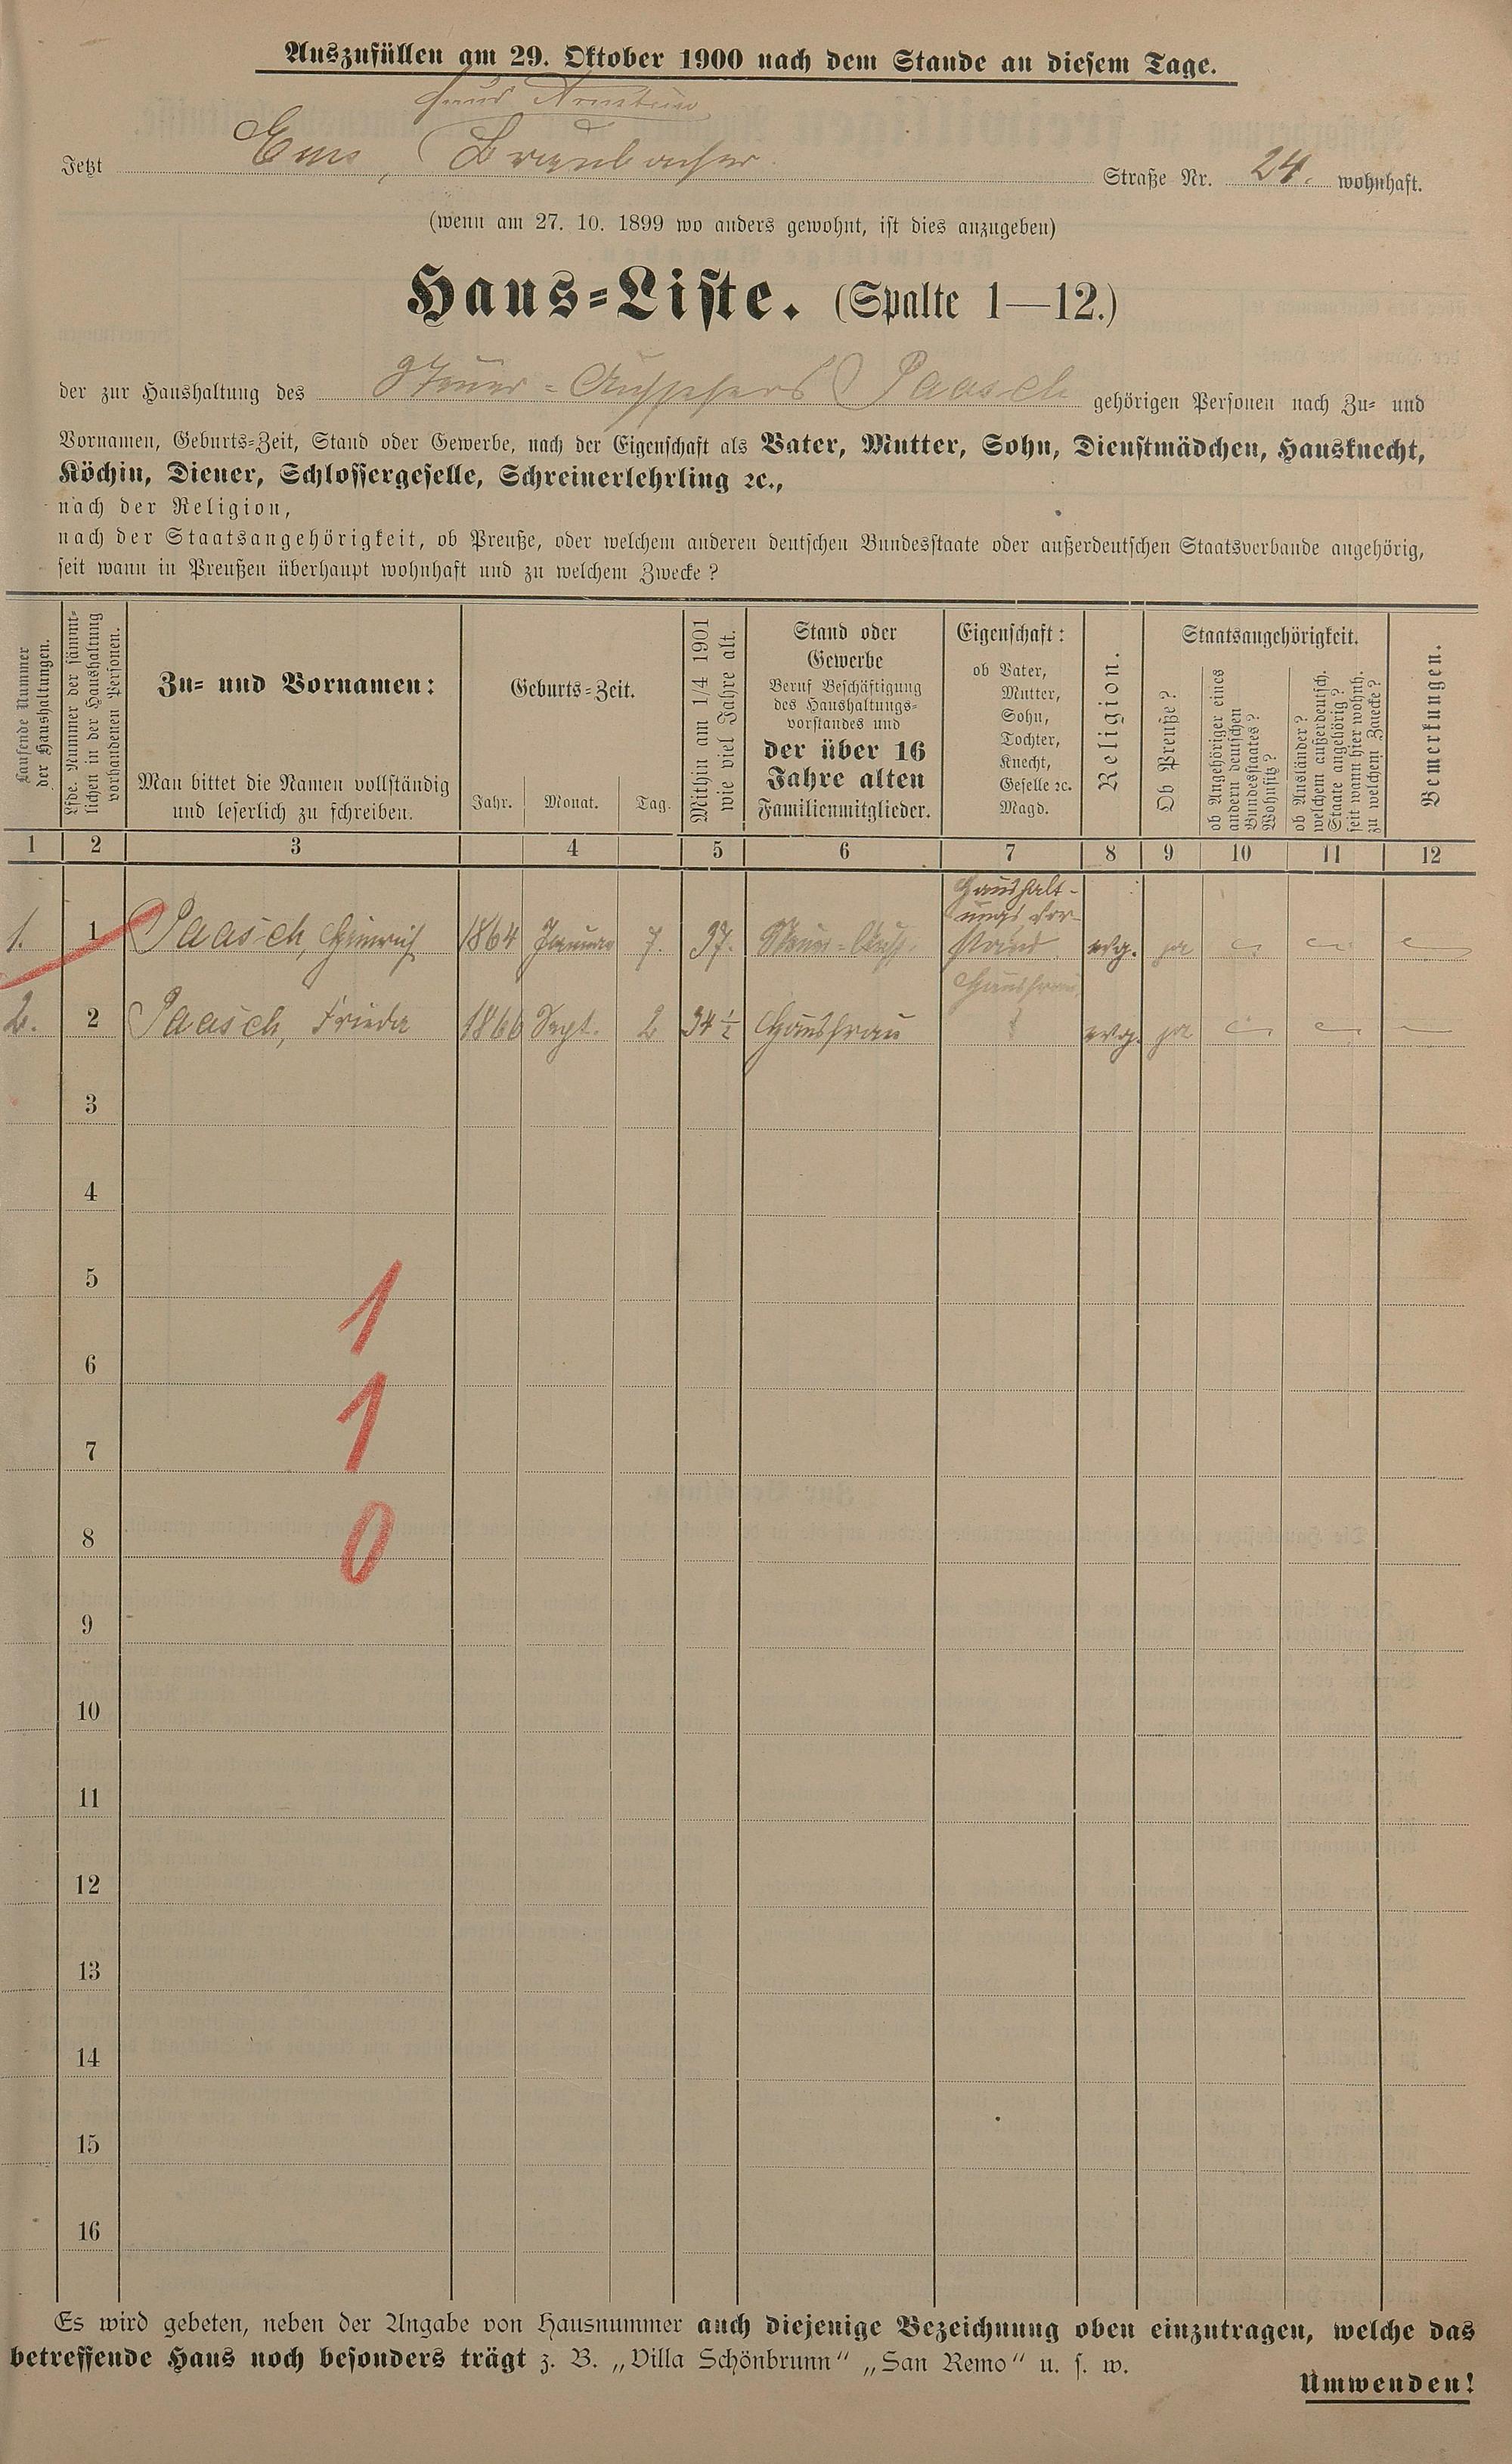 Auszufüllen am 29. Oktober 1900 nach dem Stande an diesem Tage.
Haus Arnstein
Jetzt Ems, Braubacher Straße Nr. 24. wohnhaft.
(wenn am 27. 10. 1899 wo anders gewohnt, ist dies anzugeben)
Haus=Liste. (Spalte 1—12.)
der zur Haushaltung des Steuer=Aufsehers Paasch gehörigen Personen nach Zu= und
Vornamen, Geburts=Zeit, Stand oder Gewerbe, nach der Eigenschaft als Vater, Mutter, Sohn, Dienstmädchen, Hausknecht,
Köchin, Diener, Schlossergeselle, Schreinerlehrling ꝛc.,
nach der Religion,
nach der Staatsangehörigkeit, ob Preuße, oder welchem anderen deutschen Bundesstaate oder außerdeutschen Staatsverbande angehörig,
seit wann in Preußen überhaupt wohnhaft und zu welchem Zwecke?
Laufende Nummer
der Haushaltungen.
Lfde. Nummer der sämmt=
lichen in der Haushaltung
vorhandenen Personen.
Zu= und Vornamen:
Man bittet die Namen vollständig
und leserlich zu schreiben.
Geburts=Zeit.
Jahr. Monat. Tag.
Mithin am 1/4 1901
wie viel Jahre alt.
Stand oder
Gewerbe
Beruf Beschäftigung
des Haushaltungs=
vorstandes und
der über 16
Jahre alten
Familienmitglieder.
Eigenschaft:
ob Vater,
Mutter,
Sohn,
Tochter,
Knecht,
Geselle ꝛc.
Magd.
Religion.
Staatsangehörigkeit.
Ob Preuße?
ob Angehöriger eines
andern deutschen
Bundesstaates?
Wohnsitz?
ob Ausländer?
welchem außerdeutsch.
Staate angehörig?
seit wann hier wohnh.
zu welchem Zwecke?
Bemerkungen.
1 2 3 4 5 6 7 8 9 10 11 12
Haushalt-
ungs Vor-
1. 1 Paasch, Heinrich 1864 Januar 7. 37. Steuer=Aufs. stand. evg. ja — — —
Hausfrau
2. 2 Paasch, Frieda 1866 Sept. 2 34 ½ Hausfrau evg. ja — — —
3
4
5
1
6
1
7
8
0
9
10
11
12
13
14
15
16
Es wird gebeten, neben der Angabe von Hausnummer auch diejenige Bezeichnung oben einzutragen, welche das
betreffende Haus noch besonders trägt z. B. „Villa Schönbrunn" „San Remo" u. s. w.
Umwenden!